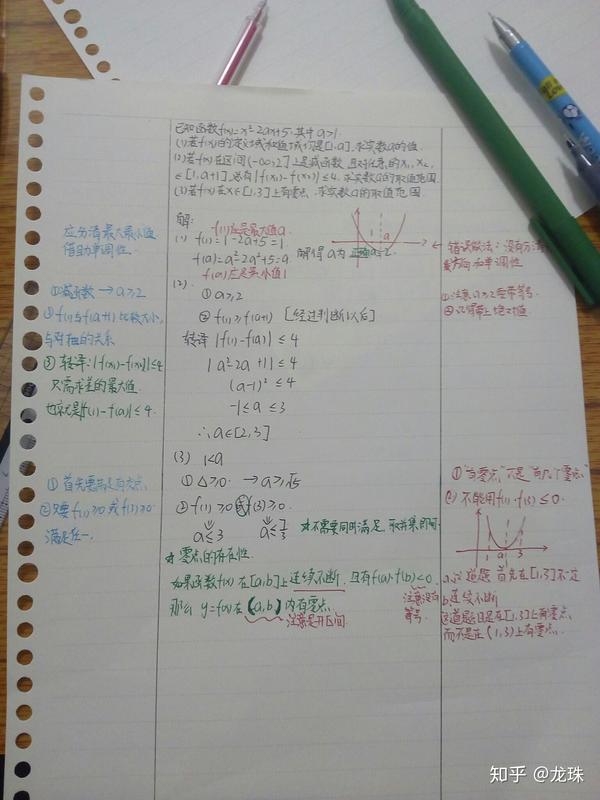 已知函数f(x)=x²-2ax+5.其中a>1.
(1)若f(x)的定义域和值域均是[1,a].求实数a的值.
(2)若f(x)在区间(-∞,2]上是减函数,且对任意的x₁,x₂
∈[1,a+1].总有|f(x₁)-f(x₂)|≤4.求实数a的取值范围.
(3)若f(x)在x∈[1,3]上有零点.求实数a的取值范围
应分清最大最小值
借助单调性.
①减函数→a≥2
②f(1)与f(a+1)比较大小,
与对轴的关系
③转译:|f(x₁)-f(x₂)|≤4
只需求差的最大值.
也就是|f(1)-f(a)|≤4.
①首先要满足有交点.
②只要f(1)≥0或f(3)≥0
满足任一.
解:
f(1)应是最大值a.
(1) f(1)=1-2a+5=1
f(a)=a²-2a²+5=a
解得a为
a=2.
f(a)应是最小值1
a
(2).
①a≥2
②f(1)≥f(a+1) [经过判断以后]
转译 |f(1)-f(a)|≤4
|a²-2a+1|≤4
(a-1)²≤4
-1≤a≤3
∴a∈[2,3]
(3) 1<a
①△≥0. →a≥√5
②f(1)≥0或f(3)≥0.
a≤3 a≤7/3
*不需要同时满足,取并集即可.
*零点的存在性.
如果函数f(x)在[a,b]上连续不断,且有f(a)·f(b)<0.
那么y=f(x)在(a,b)内有零点.
注意是开区间.
注意没有
等号.
错误做法:没有方法
方向和单调性
①注意a≥2要带等号.
②记得带上绝对值
①"有零点"不是"有几个零点"
②不能用f(1)·f(3)≤0.
1 a 3
a.这道题首先在[1,3]不一定
b连续不断
这道题目是在[1,3]上有零点,
而不是在(1,3)上有零点.
知乎 @龙珠